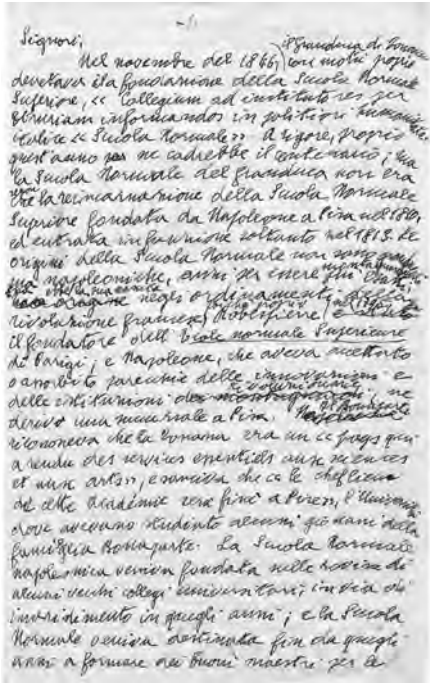 -1-
Signori,
Nel novembre del 1846, il Granduca di Toscana con motu proprio
decretava la fondazione della Scuola Normale
Superiore, « Collegium ad institutores per
informandos in politiori
« Scuola Normale ». A rigore, proprio
quest'anno ne cadrebbe il centenario; ma
la Scuola Normale del granduca non era
che la reincarnazione della Scuola Normale
Superiore fondata da Napoleone a Pisa nel 1810,
ed entrata in funzione soltanto nel 1813. Le
origini della Scuola Normale non sono
napoleoniche, anzi per essere più esatti,
negli ordinamenti della
rivoluzione francese, Robespierre è
il fondatore dell'École normale Supérieure
di Parigi; e Napoleone, che aveva accettato
o assorbito parecchie delle innovazioni e
delle istituzioni rivoluzionarie, ne
derivò una a Pisa. Il Bonaparte
riconosceva che la Toscana era un « pays qui
a rendu des services essentiels aux sciences
et aux arts », e sanciva che « le chef lieu
de cette Académie sera fixé à Pise », l'Università
dove avevano studiato alcuni giovani della
famiglia Bonaparte. La Scuola Normale
napoleonica veniva fondata sulle rovine di
alcuni vecchi collegi universitari, in via di
in quegli anni; e la Scuola
Normale veniva destinata fin da quegli
anni a formare dei buoni maestri per le